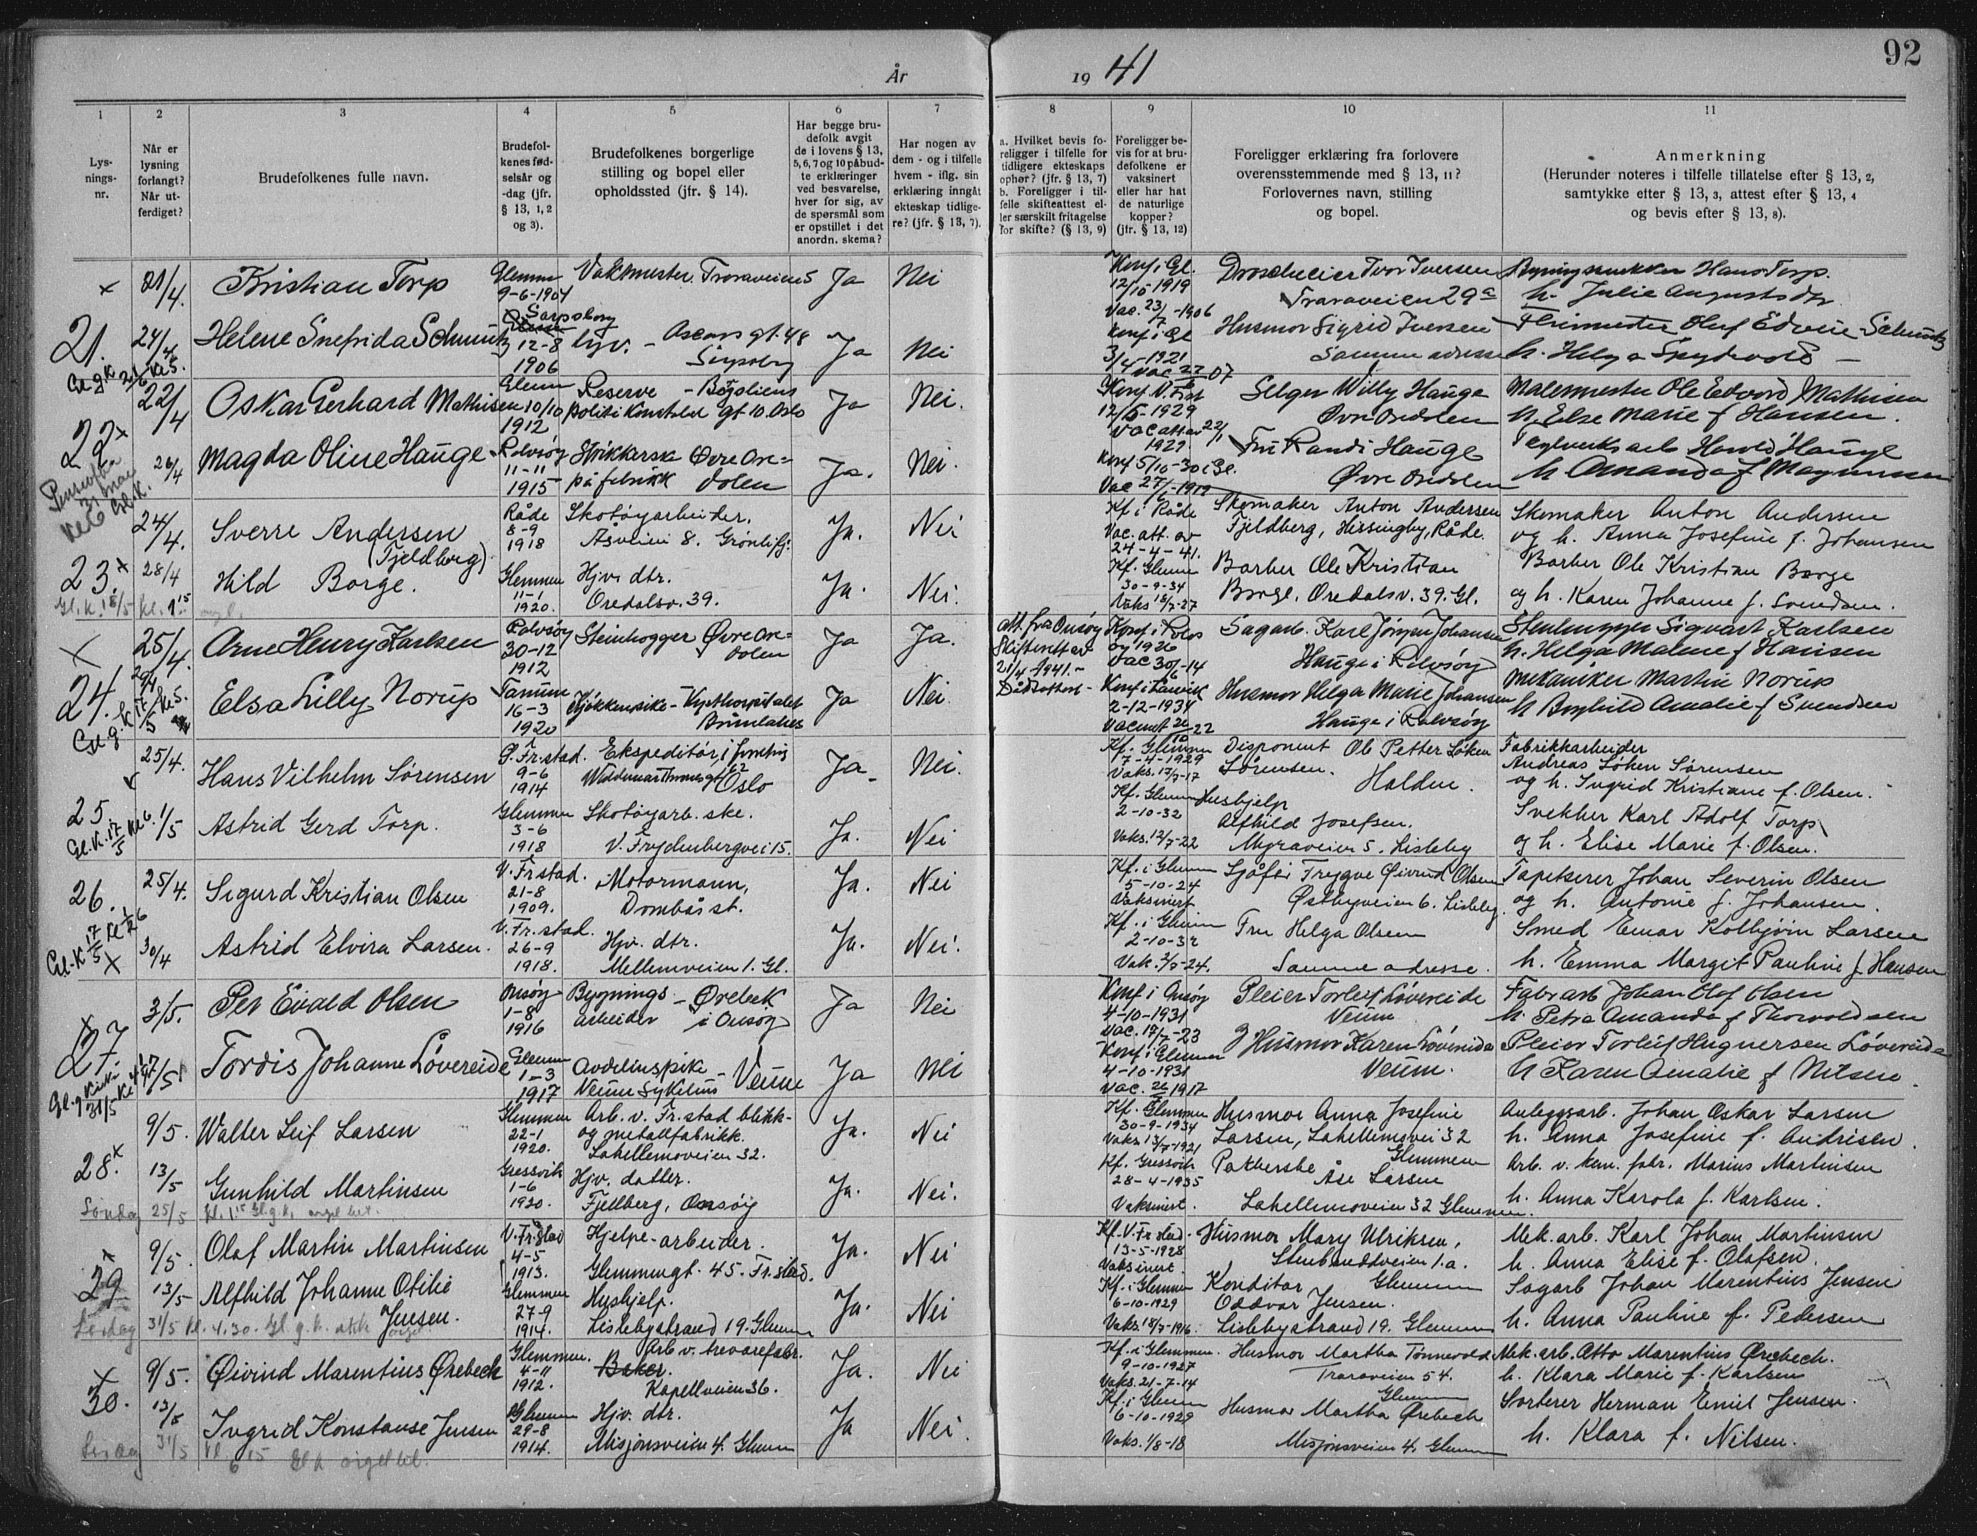 92
År 19 41
1 2 3 4 5 6 7 8 9 10 11
Lysningsnr.
Når er lysning forlangt? Når utferdiget?
Brudefolkenes fulle navn.
Brudefolkenes fødselsår og -dag (jfr. § 13, 1, 2 og 3).
Brudefolkenes borgerlige stilling og bopel eller opholdssted (jfr. § 14).
Har begge brudefolk avgit de i lovens § 13, 5, 6, 7 og 10 påbudte erklæringer ved besvarelse, hver for sig, av de spørsmål som er opstillet i det anordn. skema?
Har nogen av dem - og i tilfelle hvem - iflg. sin erklæring inngått ekteskap tidligere? (jfr. § 13, 7).
a. Hvilket bevis foreligger i tilfelle for tidligere ekteskaps ophør? (jfr. § 13, 7) b. Foreligger i tilfelle skifteattest eller særskilt fritagelse for skifte? (§ 13, 9)
Foreligger bevis for at brudefolkene er vaksinert eller har hat de naturlige kopper? (jfr. § 13, 12)
Foreligger erklæring fra forlovere overensstemmende med § 13, 11? Forlovernes navn, stilling og bopel.
Anmerkning (Herunder noteres i tilfelle tillatelse efter § 13, 2, samtykke efter § 13, 3, attest efter § 13, 4 og bevis efter § 13, 8).
x 21/4. Kristian Torp Glemm 9-6-1904 Vaktmester Traraveien 5 Ja Nei Konf i Gl. 12/10-1919 Vac. 23/7-1906 Ivar Iversen Traraveien 29a Hans Torp. h. Julie Augustsdtr
21. 24/4 Helene Snefrida Schmuntz Sarpsborg 12-8 1906 Oscars gt. 48 Ja Nei Konf i Gl 3/4-1921 Vac 22 07 Husmor Sigrid Iversen Samme adresse Oluf Edvin Schmuntz h. Helga Spydvold
22/4 Oskar Gerhard Mathisen Glemm 10/10 1912 Reserve politi konstbel gt 10. Oslo Ja Nei. 12/5-1929 Vac att av 22/11 1929 Selger Willy Hauge Øvre Oredalen Malermester Ole Edvard Mathisen h. Else Marie f Hansen.
22 x 26/4 Magda Oline Hauge Rolvsøy 11-11 1915 på fabrikk Øvre Oredalen Ja. Nei. Konf 5/10-30 i Gl. Vac 27/6-1919 Fru Randi Hauge Øvre Oredalen Teglverks arb Harald Hauge h Amanda f Magnussen
24/4. Sverre Andersen (Fjeldberg) Råde 8-9 1918 Skotøyarbeider. Åsveien 8. Grønli Ja. Nei Kf i Råde Vac. att. av 24-4-41. Skomaker Anton Andersen Fjeldberg, Hissingby, Råde. Skomaker Anton Andersen og h. Anna Josefine f. Johansen
23. x 28/4 Hild Borge. Glemmen 11-1 1920. Hjv. dtr. Oredalsv. 39. Ja. Nei. Kf. Glemm 30-9-34 Vaks 18/7-27 Barber Ole Kristian Borge. Oredalsv. 39. Gl. Barber Ole Kristian Borge og h. Karen Johanne f. Svendsen.
Gl. K. 18/5 kl. 1 15
x 25/4. Arne Henry Karlsen Rolvsøy 30-12 1912 Steinhogger Øvre Oredalen Ja Ja. att. fra Onsøy Skifterett av 21/4 1941. Dødsattest Konf i Rolvs øy 1926 Vac 30/6-14 Sagarb. Karl Jörgen Johansen Hauge i Rolvsøy Steinhugger Sigvart Karlsen h. Helga Malene f Hansen
24. 29/4 Elsa Lilly Norup Tanum 16-3 1920 Kjøkkenpike Ja Nei Konf i Larvik 2-12-1934 Husmor Helga Marie Johansen Hauge i Rolvsøy Mekaniker Martin Norup h Borghild Amalie f Svendsen
25/4. Hans Vilhelm Sørensen G. Fr.stad. 9-6 1914 Ekspeditør Oslo Ja Nei. Kf. Glemm 7-4-1929 Vaks. 17/7-17 Disponent Ole Petter Løken Sørensen. Halden. Fabrikkarbeider Andreas Løken Sørensen og h. Ingrid Kristiane f. Olsen.
25 Gl. K. 17/5 kl 6. 1/5 Astrid Gerd Torp. Glemmen 3-6 1918 Skotøyarb. ske. V. Frydenbergvei 15. Ja. Nei Kf. Glemm 2-10-32 Vaks. 12/7-22 Hushjelp Alfhild Josefsen. Myraveien 5. Lisleby Svekker Karl Adolf Torp og h. Elise Marie f. Olsen.
26. 25/4. Sigurd Kristian Olsen V. Fr.stad. 21-8 1909. Motormann, Dombås st. Ja. Nei Kf. i Glemm 5-10-24 Vaksinert Sjåfør Trygve Øivind Olsen Østbyveien 6. Lisleby. Tapetserer Johan Severin Olsen og h. Antonie f. Johansen.
Gl. K 17/5 x 30/4 Astrid Elvira Larsen. V. Fr.stad. 26-9 1918. Hjv. dtr. Mellemveien 1. Gl. Ja. Nei. Kf. i Glemm 2-10-32 Vak. 2/7-24. Fru Helga Olsen Samme adresse. Smed Einar Kolbjørn Larsen h. Emma Margit Pauline f. Hansen
27. x 3/5. Per Evald Olsen Onsøy 1-8 1916 Bygningsarbeider Ørebek i Onsøy Ja Nei Konf i Onsøy 4-10-1931 Vac. 17/7-23 Pleier Torleif Løvereide Veum Fabr arb Johan Olof Olsen h. Petra Amanda f Thorvaldsen
Tordis Johanne Løvereide Glemm 1-3 1917 Avdelingspike Veum Sykehus Veum Ja Nei Konf i Glemmen 4-10-1931 Husmor Karen Løvereide Veum. Pleier Torleif Hugnersen Løvereide h Karen Amalie f Nilsen.
9/5. Walter Leif Larsen Glemmen 22-1 1920. Arb. v. Fr.stad blikk- og metallfabrikk. Lahellemoveien 32. Ja. Nei Kf. Glemmen 30-9-1934 Vaks. 13/7-1921 Husmor Anna Josefine Larsen, Lahellemovei 32 Glemmen Anleggsarb. Johan Oskar Larsen h. Anna Josefine f. Andrisen.
28. x 13/5 Gunhild Martinsen Gressvik 1-6 1920. Hjv. datter. Fjellberg, Onsøy Ja. Nei. Kf. Gressvik 28-4-1935 Vaksinert. Pakkerske Åse Larsen Lahellemoveien 32 Glemmen. Arb. v. kem. fabr. Marius Martinsen h. Anna Karola f. Karlsen.
Søndag 25/5 kl. 1 15 Gl. g. k.
x 9/5. Olaf Martin Martinsen V. Fr.stad 4-5 1913. Hjelpe-arbeider. Glemmengt. 45. Fr.stad. Ja. Nei Kf. V. Fr.stad. 13-5-1928 Vaksinert. Husmor Mary Ulriksen, 1.a. Glemmen Mek. arb. Karl Johan Martinsen h. Anna Elise f. Olafsen.
29 13/5 Alfhild Johanne Otilie Jensen. Glemmen 27-9 1914. Hushjelp. Lislebystrand 19. Glemm Ja. Nei Kf. i Glemm 6-10-1929 Vaks. 18/7-1916. Konditor Oddvar Jensen. Lislebystrand 19. Glemmen Sagarb Johan Marentius Jensen h. Anna Pauline f. Pedersen
31/5 kl. 4.30. Gl. g. k.
x 30. 9/5. Øivind Marentius Ørebech Glemmen. 4-11 1912. Arb v. trevarefabr. Baker. Kapellveien 36. Ja. Nei Kf. i Glemmen. 9-10-1927 Vaks. 21-7-14 Husmor Martha Tønnevold Traraveien 54. Glemm Mek. arb. Otto Marentius Ørebech. h. Klara Marie f. Karlsen
13/5 Ingrid Konstanse Jensen Glemm 29-8 1914. Hjv. dtr. Misjonsveien 4. Glemm Ja Nei. Kf. i Glemm 6-10-1929 Vaks. 1/8-18 Husmor Martha Ørebech Misjonsveien 4. Glemm Sorterer Herman Emil Jensen. h. Klara f. Nilsen.
31/5 kl.